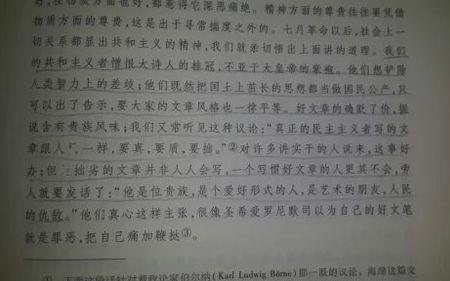 好，在物质方面也好，都惹得它深恶痛绝。精神方面的尊贵往往要凭借
物质方面的尊贵，这是出于寻常揣度之外的。七月革命以后，社会上一
切关系都显出共和主义的精神，我们就亲切悟出上面讲的道理。我们
的共和主义者憎恨大诗人的桂冠，不亚于大皇帝的紫袍。他们想铲除
人类智力上的差歧；他们既然把国土上苗长的思想都当做国民公产，其
可以出了告示，要大家的文章风格也一律平等。好文章的确跌了价，据
说含有贵族风味；我们又常听见这种议论：“真正的民主主义者写的文
章跟人一样，要真，要质，要拙。”②对许多讲实干的人说来，这事好
办；但 拙劣的文章并非人人会写，一个写惯好文章的人更其不会，旁
人就要发话了：“他是位贵族，是个爱好形式的人，是艺术的朋友，人民
的仇敌。”他们真心这样主张，很像圣希爱罗尼默司以为自己的好文笔
就是罪恶，把自己痛加鞭挞③。
① 下面这段话针对着政论家伯尔纳(Karl Ludwig Börne)那一派的议论。海涅这篇文